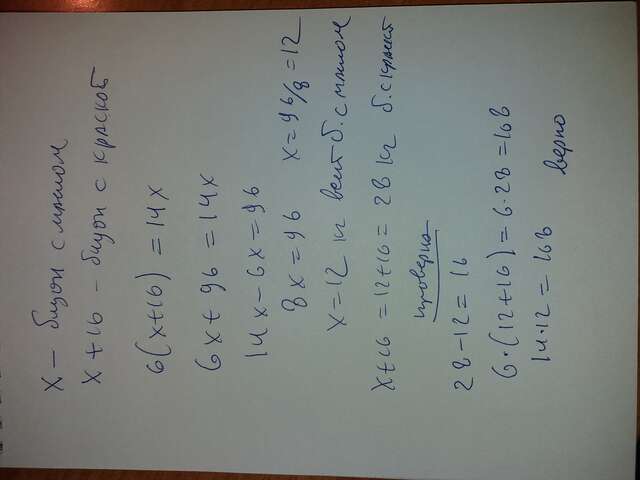 x – бидон с маслом
x + 16 – бидон с краской
6(x+16) = 14x
6x + 96 = 14x
14x – 6x = 96
8x = 96    x = 96/8 = 12
x = 12 кг весит б. с маслом
x+16 = 12+16 = 28 кг б. с краской
проверка
28 – 12 = 16
6·(12+16) = 6·28 = 168
14·12 = 168
верно